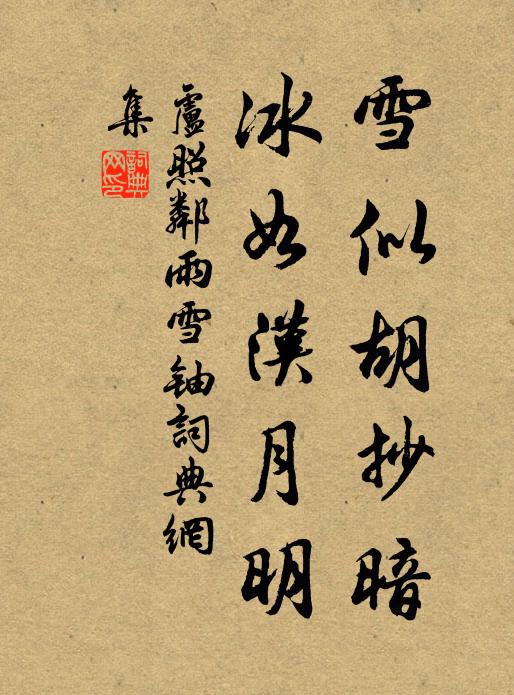 雪似胡抄暗
冰如漢月明
盧照鄰雨雪鈾詞典網
集
詞典網印